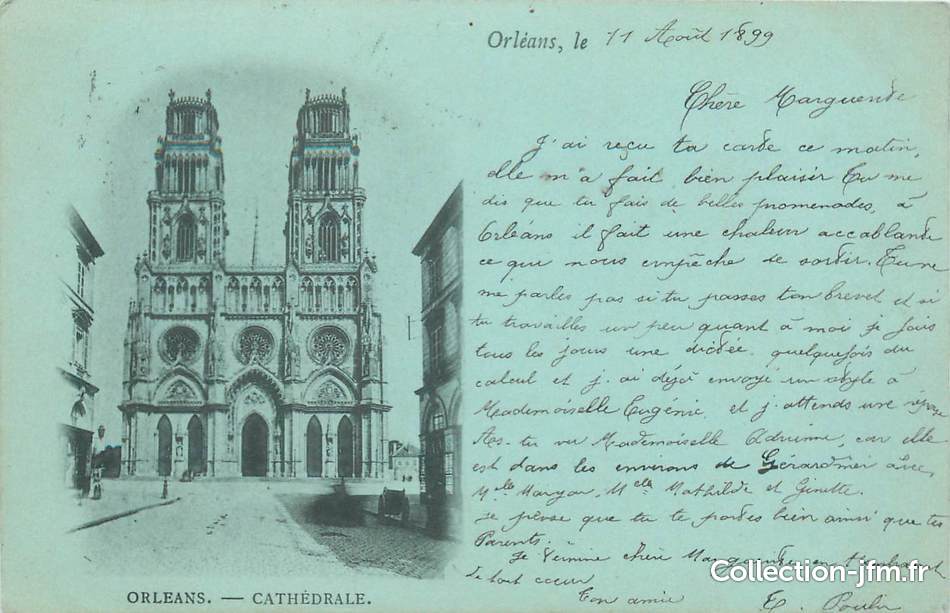 Orléans, le 11 Août 1899
Chère Marguerite
J'ai reçu ta carte ce matin,
elle m'a fait bien plaisir Tu me
dis que tu fais de belles promenades, à
Orléans il fait une chaleur accablante
ce qui nous empêche de sortir. Tu ne
me parles pas si tu passes ton brevet et si
tu travailles un peu quant à moi je fais
tous les jours une dictée, quelquefois du
calcul et j'ai déjà envoyé un style à
Mademoiselle Eugénie, et j'attends une
As-tu vu Mademoiselle car elle
est dans les environs de Gérardmer avec
Mlle Mlle Mathilde et Ginette.
Je pense que tu te portes bien ainsi que tes
Parents.
Je termine chère en
de tout coeur
Ton amie
ORLEANS. — CATHÉDRALE.
Collection-jfm.fr